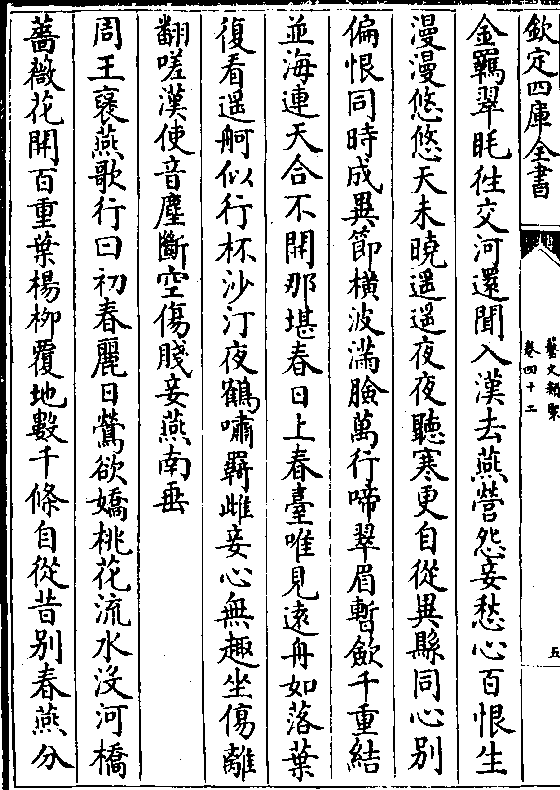 欽定四庫全書
藝文類聚
卷四十二
五
金羈翠眊徃交河還聞入漢去燕營怨妾愁心百恨生
漫漫悠悠天未曉遥遥夜夜聽寒更自從異縣同心別
偏恨同時成異節橫波滿臉萬行啼翠眉暫歛千重結
並海連天合不開那堪春日上春臺唯見遠舟如落葉
復看遥舸似行杯沙汀夜鶴嘯羈雌妾心無趣坐傷離
翻嗟漢使音塵斷空傷賤妾燕南垂
周王襃燕歌行曰初春麗日鶯欲嬌桃花流水沒河橋
薔薇花開百重葉楊柳覆地數千條自從昔別春燕分